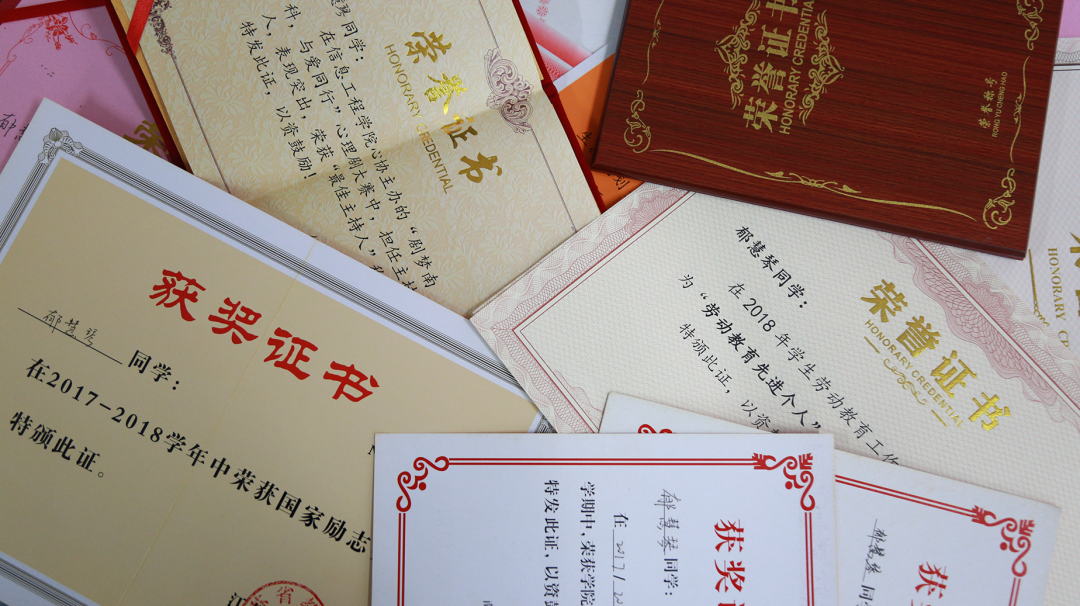 荣誉证书
HONORARY CREDENTIAL
琴同学:
在信息工程学院心协主办的“剧梦南
与爱同行”心理剧大赛中,担任主持
科,
人,表现突出,荣获“最佳主持人”
特发此证,以资鼓励!
荣誉证书
HONORARY CREDENTIAL
荣誉称号
RONG YU CHENG HAO
获奖证书
郁慧琴 同学:
在2017-2018学年中荣获国家励志
特颁此证。
荣誉证书
HONORARY CREDENTIAL
郁慧琴同学:
在2018年学生劳动教育工作
为“劳动教育先进个人”
特颁此证,以资
HONORARY
获奖
郁慧琴同学:
在2017/20
学期中,荣获学院
特发此证,以资
获
郁慧琴同学